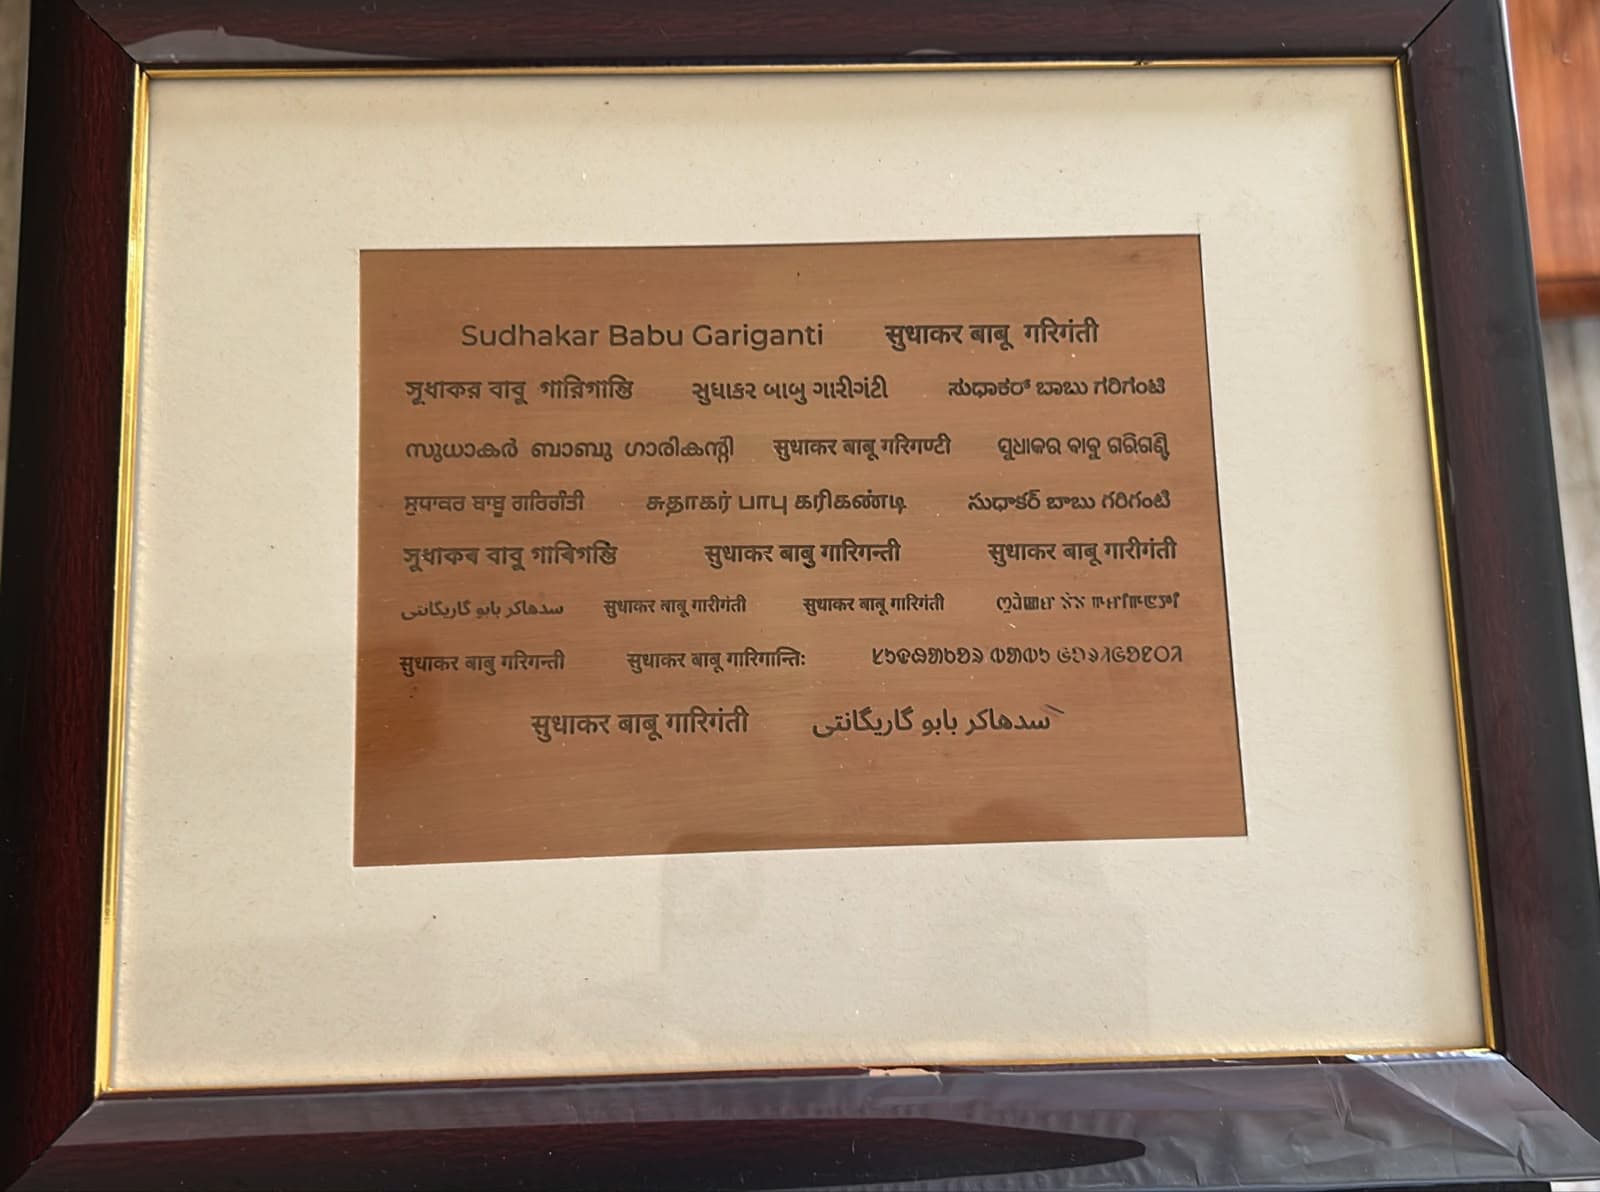 Sudhakar Babu Gariganti सुधाकर बाबू गरिगंती
সুধাকর বাবু গারিগান্তি સુધાકર બાબુ ગારીગંટી ಸುಧಾಕರ್ ಬಾಬು ಗರಿಗಂಟಿ
സുധാകർ ബാബു ഗാരികന്റി सुधाकर बाबू गरिगण्टी ସୁଧାକର ବାବୁ ଗରିଗଣ୍ଟି
ਸੁਧਾਕਰ ਬਾਬੂ ਗਾਰਿਗੰਤੀ சுதாகர் பாபு கரிகண்டி సుధాకర్ బాబు గరిగంటి
সুধাকৰ বাবু গাৰিগন্তি सुधाकर बाबु गारिगन्ती सुधाकर बाबू गारीगंती
سدھاکر بابو گاریگانتی सुधाकर बाबू गारीगंती सुधाकर बाबू गारिगंती
सुधाकर बाबु गरिगन्ती सुधाकर बाबू गारिगान्तिः ᱥᱩᱫᱷᱟᱠᱟᱨ ᱵᱟᱵᱩ
सुधाकर बाबू गारिगंती سدھاکر بابو گاریگانتی